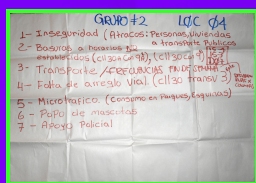 GRUPO #2 LOC 04
1- Inseguridad (Atracos: Personas, Viviendas
a transporte Publicos
2- Basuras a horarios NO
establecidos (cll30 con 9ª), (cll30 con 9
3- Transporte / FRECUENCIAS FIN DE SEMANA
4- Falta de arreglo Vial (cll30 Transv 3)
5- Microtrafico (Consumo en Parques, Esquinas)
6- PoPo de mascotas
7- Apoyo Policial